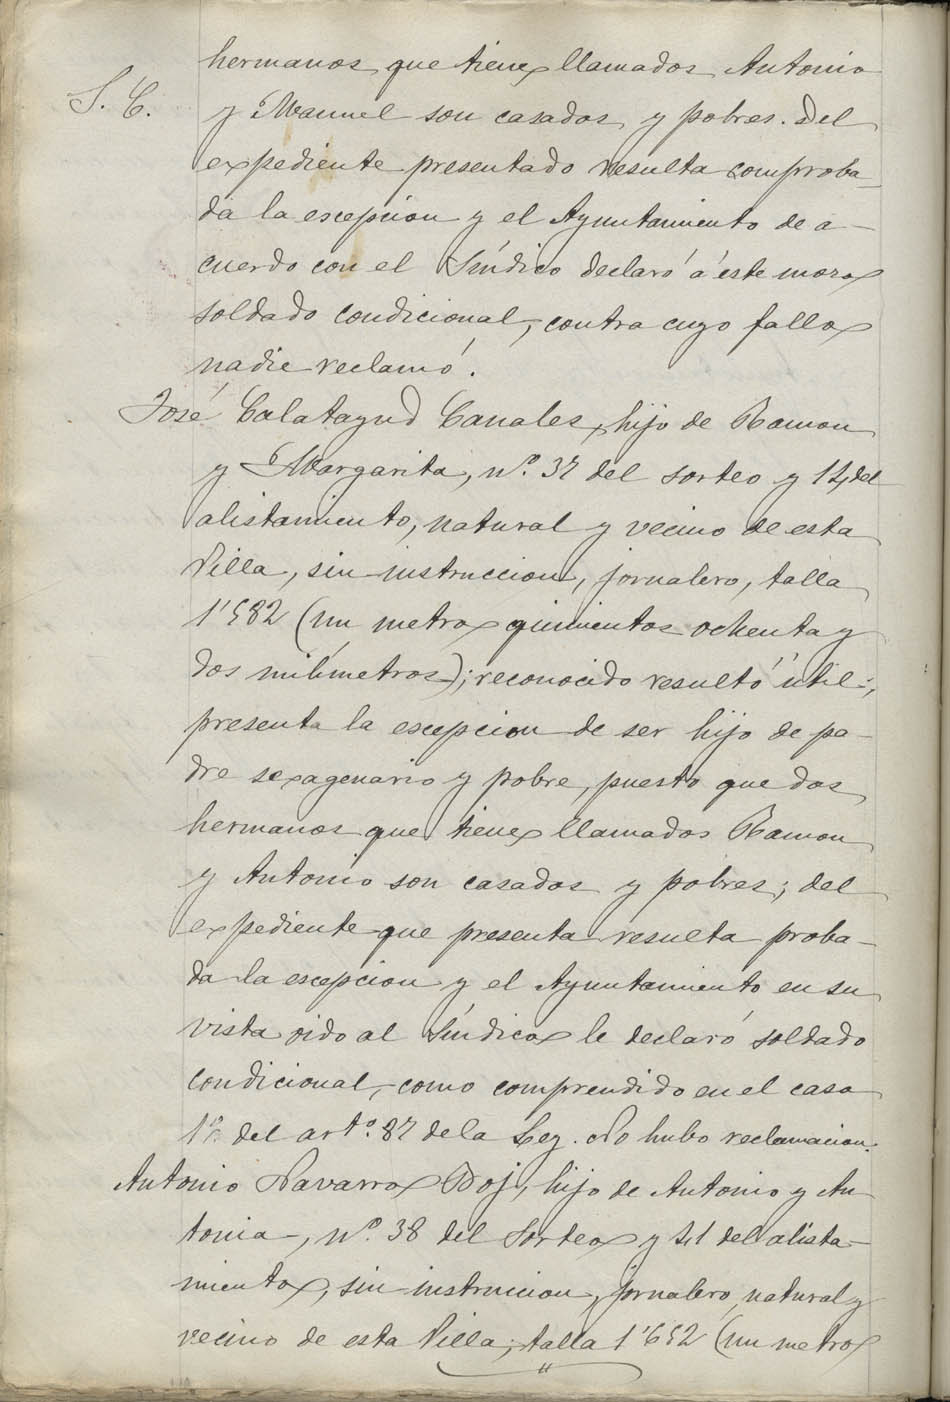 hermanos que tiene llamados Antonio
S. C.
y Manuel son casados y pobres. Del
expediente presentado resulta comproba-
da la escepcion y el Ayuntamiento de a-
cuerdo con el Síndico declaró á este mozo
soldado condicional, contra cuyo fallo
nadie reclamó.
José Calatayud Canales, hijo de Ramon
y Margarita, nº. 37 del sorteo y 14 del
alistamiento, natural y vecino de esta
Villa, sin instruccion, jornalero, talla
1'582 (un metro quinientos ochenta y
dos milímetros); reconocido resultó útil;
presenta la escepcion de ser hijo de pa-
dre sexagenario y pobre, puesto que dos
hermanos que tiene llamados Ramon
y Antonio son casados y pobres; del
expediente que presenta resulta proba-
da la escepcion y el Ayuntamiento en su
vista oido al Síndico le declaró soldado
condicional, como comprendido en el caso
1º. del artº. 87 de la Ley. No hubo reclamacion.
Antonio Navarro Boj, hijo de Antonio y An
tonia, nº. 38 del Sorteo y del alista-
miento, sin instruccion, jornalero, natural y
vecino de esta Villa; talla 1'652 (un metro